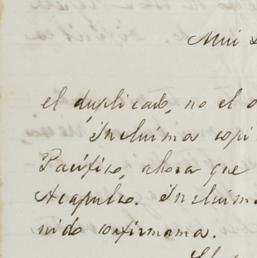 Mui
el duplicado, no el o
Incluima copi
Pacífico, ahora que
Acapulco. Incluim
nido confirmama.